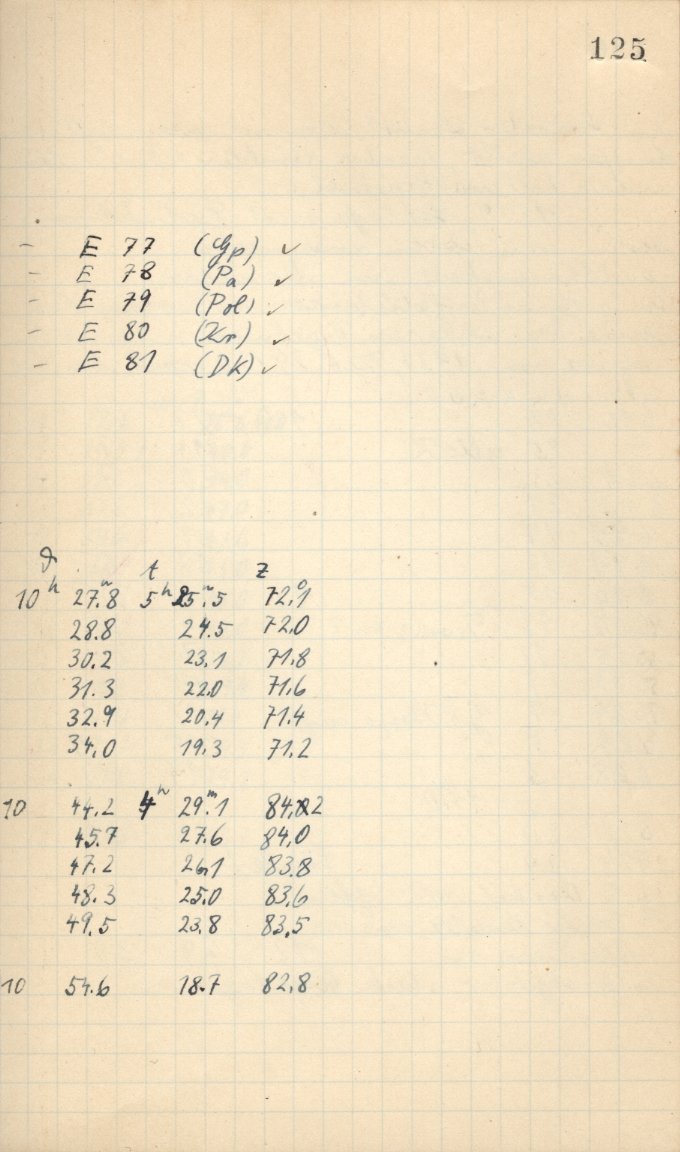 125
- E 77 (Gp) ✓
- E 78 (Pa) ✓
- E 79 (Pol) ✓
- E 80 (Kr) ✓
- E 81 (DK) ✓
ϑ t z
10ʰ 27.ᵐ8 5ʰ 25.ᵐ5 72.°1
28.8 24.5 72.0
30.2 23.1 71.8
31.3 22.0 71.6
32.9 20.4 71.4
34.0 19.3 71.2
10 44.2 4ʰ 29.ᵐ1 84.2
45.7 27.6 84.0
47.2 26.1 83.8
48.3 25.0 83.6
49.5 23.8 83.5
10 54.6 18.7 82.8